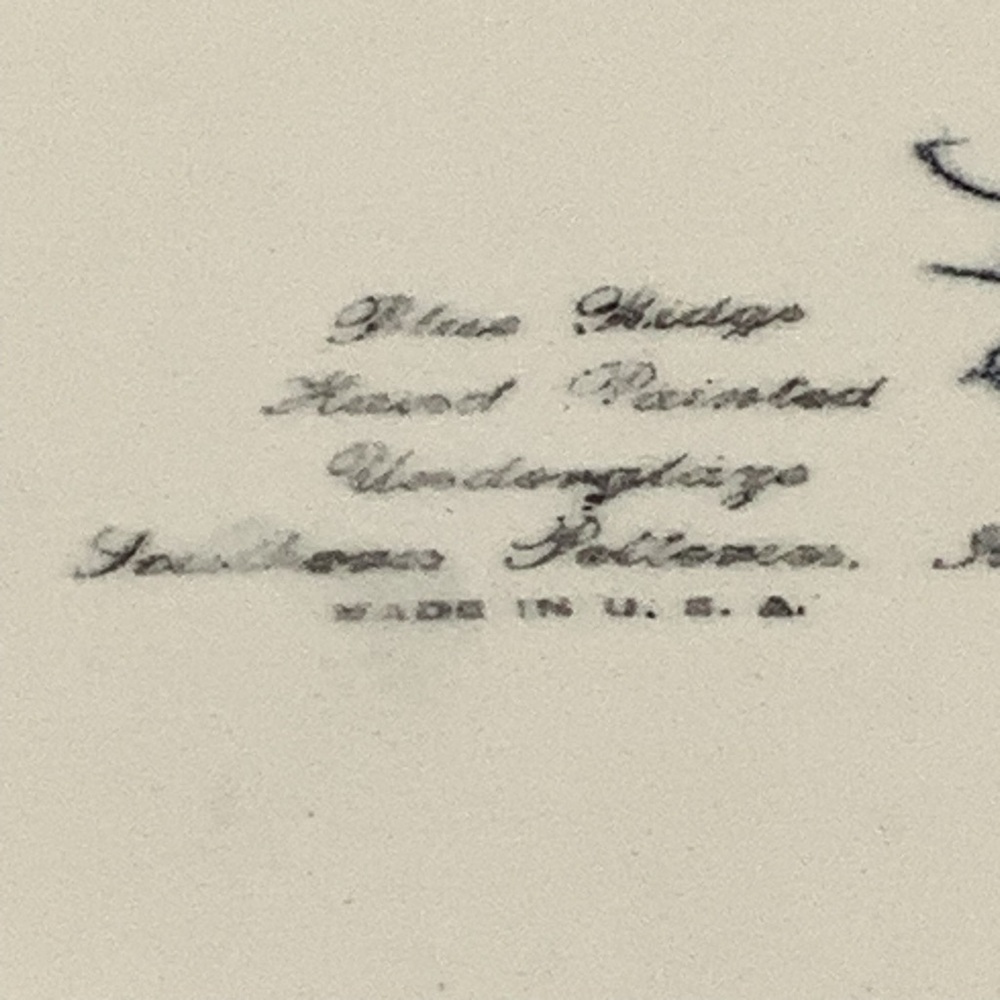 Blue Ridge
Hand Painted
Underglaze
Southern Potteries.
MADE IN U. S. A.